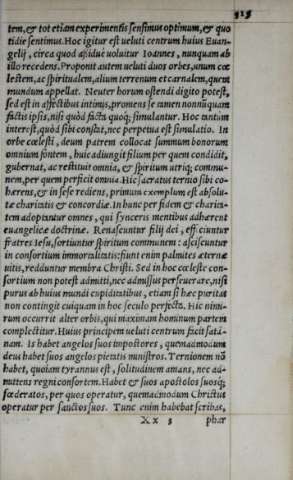 513
tem, & tot etiam experimentis sensimus optimum, & quo
tidie sentimus. Hoc igitur est ueluti centrum huius Euan-
gelij, circa quod aßiduè uoluitur Ioannes, nunquam ab
illo recedens. Proponit autem ueluti duos orbes, unum coe
lestem, ac spiritualem, alium terrenum et carnalem, quem
mundum appellat. Neuter horum ostendi digito potest,
sed est in affectibus intimis, promens se tamen nonnunquam
factis ipsis, nisi quòd facta quoq; simulantur. Hoc tantum
interest, quòd sibi constat, nec perpetua est simulatio. In
orbe coelesti, deum patrem collocat summum bonorum
omnium fontem, huic adiungit filium per quem condidit,
gubernat, ac restituit omnia, & spiritum utriq; commu-
nem, per quem perficit omnia. Hic sacratus ternio sibi co-
hærens, & in sese rediens, primum exemplum est absolu-
tæ charitatis & concordiæ. In hunc per fidem & charita-
tem adoptantur omnes, qui synceris mentibus adhærent
euangelicæ doctrinæ. Renascuntur filij dei, efficiuntur
fratres Iesu, sortiuntur spiritum communem: asciscuntur
in consortium immortalitatis: fiunt enim palmites æternæ
uitis, redduntur membra Christi. Sed in hoc coeleste con-
sortium non potest admitti, nec admissus perseuerare, nisi
purus ab huius mundi cupiditatibus, etiam si hæc puritas
non contingit cuiquam in hoc seculo perfecta. Hic nimi-
rum occurrit alter orbis, qui maximam hominum partem
complectitur. Huius principem ueluti centrum facit satã-
nam. Is habet angelos suos impostores, quemadmodum
deus habet suos angelos pietatis ministros. Ternionem nõ
habet, quoniam tyrannus est, solitudinem amans, nec ad-
mittens regni consortem. Habet & suos apostolos suosq;
foederatos, per quos operatur, quemadmodum Christus
operatur per sanctos suos. Tunc enim habebat scribas,
X x 5 phar